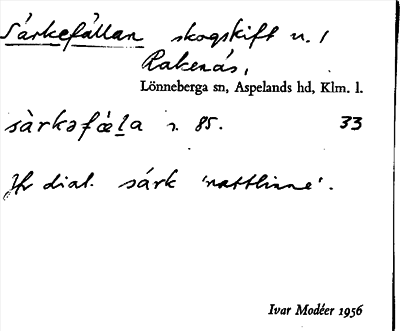 Särkefällan skogskift n. 1
Rakenäs,
Lönneberga sn, Aspelands hd, Klm. l.
sàrkəfæ̀la s. 85. 33
Jfr dial. särk 'nattlinne'.
Ivar Modéer 1956